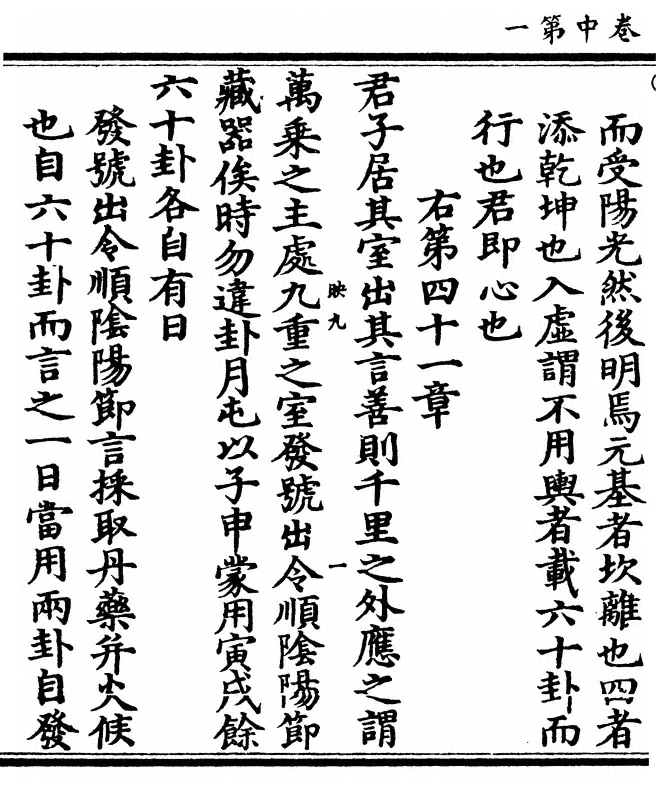 卷中第一
而受陽光然後明焉元基者坎離也四者
添乾坤也入虛謂不用輿者載六十卦而
行也君即心也
右第四十一章
君子居其室出其言善則千里之外應之謂
映九
一
萬乘之主處九重之室發號出令順陰陽節
藏器俟時勿違卦月屯以子申蒙用寅戌餘
六十卦各自有日
發號出令順陰陽節言採取丹藥并火候
也自六十卦而言之一日當用兩卦自發